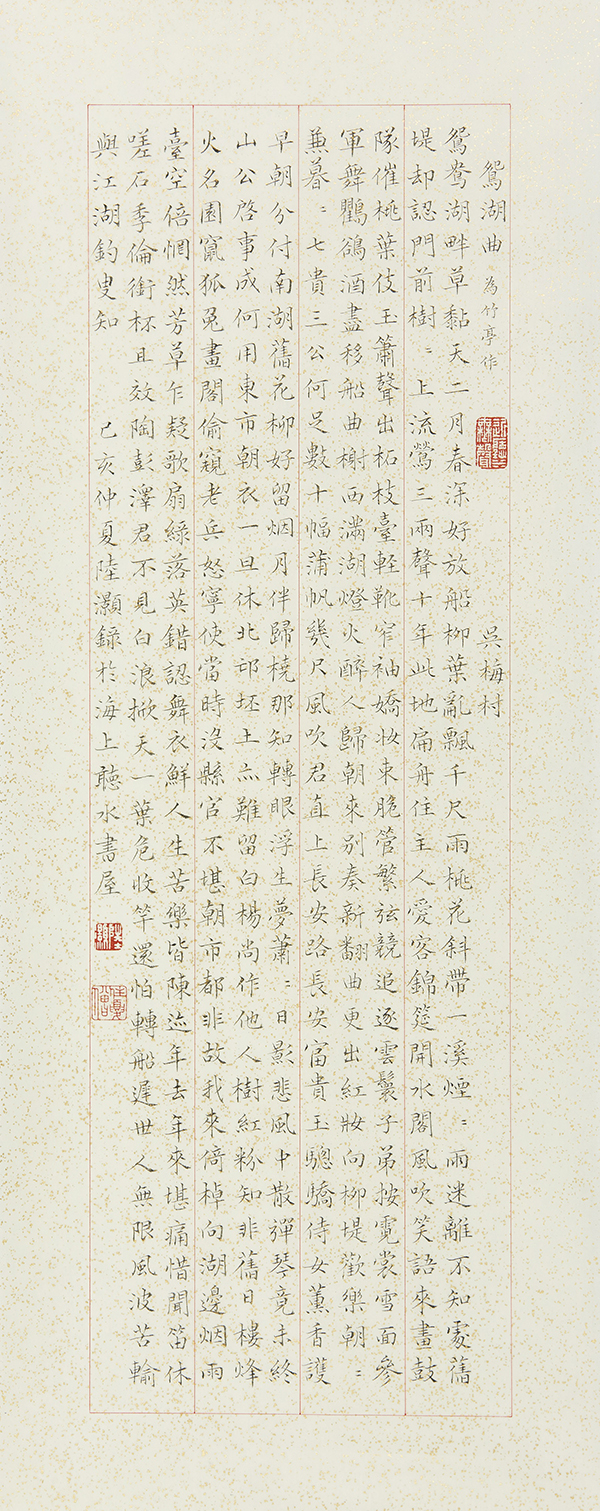 鴛湖曲 為竹亭作 吳梅村
鴛鴦湖畔草黏天二月春深好放船柳葉亂飄千尺雨桃花斜帶一溪煙〻雨迷離不知處舊
堤却認門前樹〻上流鶯三兩聲十年此地扁舟住主人愛客錦筵開水閣風吹笑語來畫鼓
隊催桃葉伎玉簫聲出柘枝臺輕靴窄袖嬌妝束脆管繁弦競追逐雲鬟子弟按霓裳雪面參
軍舞鸜鵒酒盡移船曲榭西滿湖燈火醉人歸朝來別奏新翻曲更出紅妝向柳堤歡樂朝〻
兼暮〻七貴三公何足數十幅蒲帆幾尺風吹君直上長安路長安富貴玉驄驕侍女薰香護
早朝分付南湖舊花柳好留烟月伴歸橈那知轉眼浮生夢蕭〻日影悲風中散彈琴竟未終
山公啓事成何用東市朝衣一旦休北邙坯土亦難留白楊尚作他人樹紅粉知非舊日樓烽
火名園竄狐兔畫閣偷窺老兵怒寧使當時沒縣官不堪朝市都非故我來倚棹向湖邊烟雨
臺空倍惘然芳草乍疑歌扇綠落英錯認舞衣鮮人生苦樂皆陳迹年去年來堪痛惜聞笛休
嗟石季倫銜杯且效陶彭澤君不見白浪掀天一葉危收竿還怕轉船遲世人無限風波苦輸
與江湖釣叟知 己亥仲夏陸灝錄於海上聽水書屋
陸灝